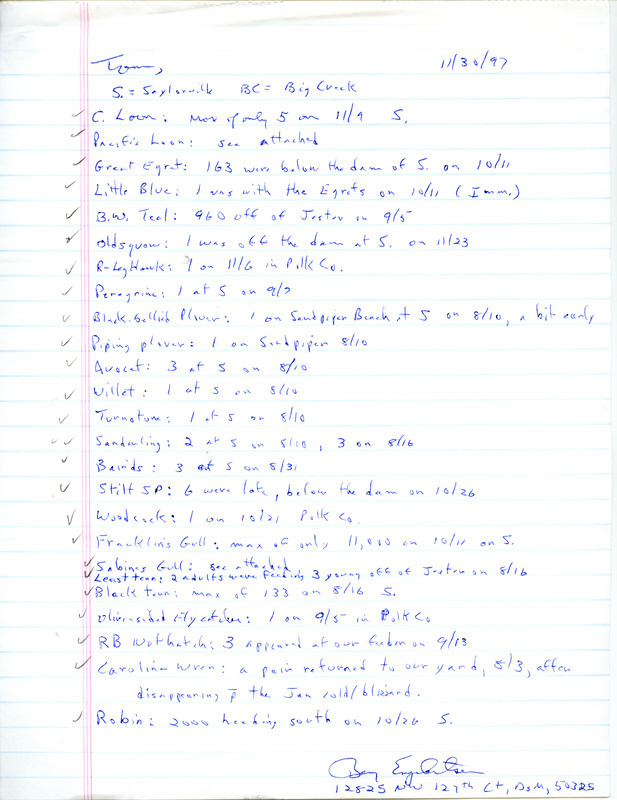 Tom, 11/30/97
S. = Saylorville BC = Big Creek
C. Loon: Max of only 5 on 11/9 S.
Pacific Loon: see attached
Great Egret: 163 were below the dam of S. on 10/11
Little Blue: 1 was with the Egrets on 10/11 (Imm.)
B.W. Teal: 960 off of Jester on 9/5
Oldsquaw: 1 was off the dam at S. on 11/23
R-leg Hawk: 1 on 11/6 in Polk Co.
Peregrine: 1 at S on 9/7
Black-bellied Plover: 1 on Sandpiper Beach at S on 8/10, a bit early
Piping plover: 1 on Sandpiper 8/10
Avocet: 3 at S on 8/10
Willet: 1 at S on 8/10
Turnstone: 1 at S on 8/10
Sanderling: 2 at S on 8/10, 3 on 8/16
Bairds: 3 at S on 8/31
Stilt SP: 6 were late, below the dam on 10/26
Woodcock: 1 on 10/21 Polk Co.
Franklin's Gull: max of only 11,000 on 10/11 on S.
Sabines Gull: see attached
Least tern: 2 adults were feeding 3 young off of Jester on 8/16
Black tern: max of 133 on 8/16 S.
Olive-sided Flycatcher: 1 on 9/5 in Polk Co
RB Nuthatch: 3 appeared at our feeder on 9/13
Carolina Wren: a pair returned to our yard, 8/3, after
disappearing p̄ the Jan cold/blizzard.
Robin: 2000 heading south on 10/26 S.
12825 NW 127th Ct, DsM, 50325